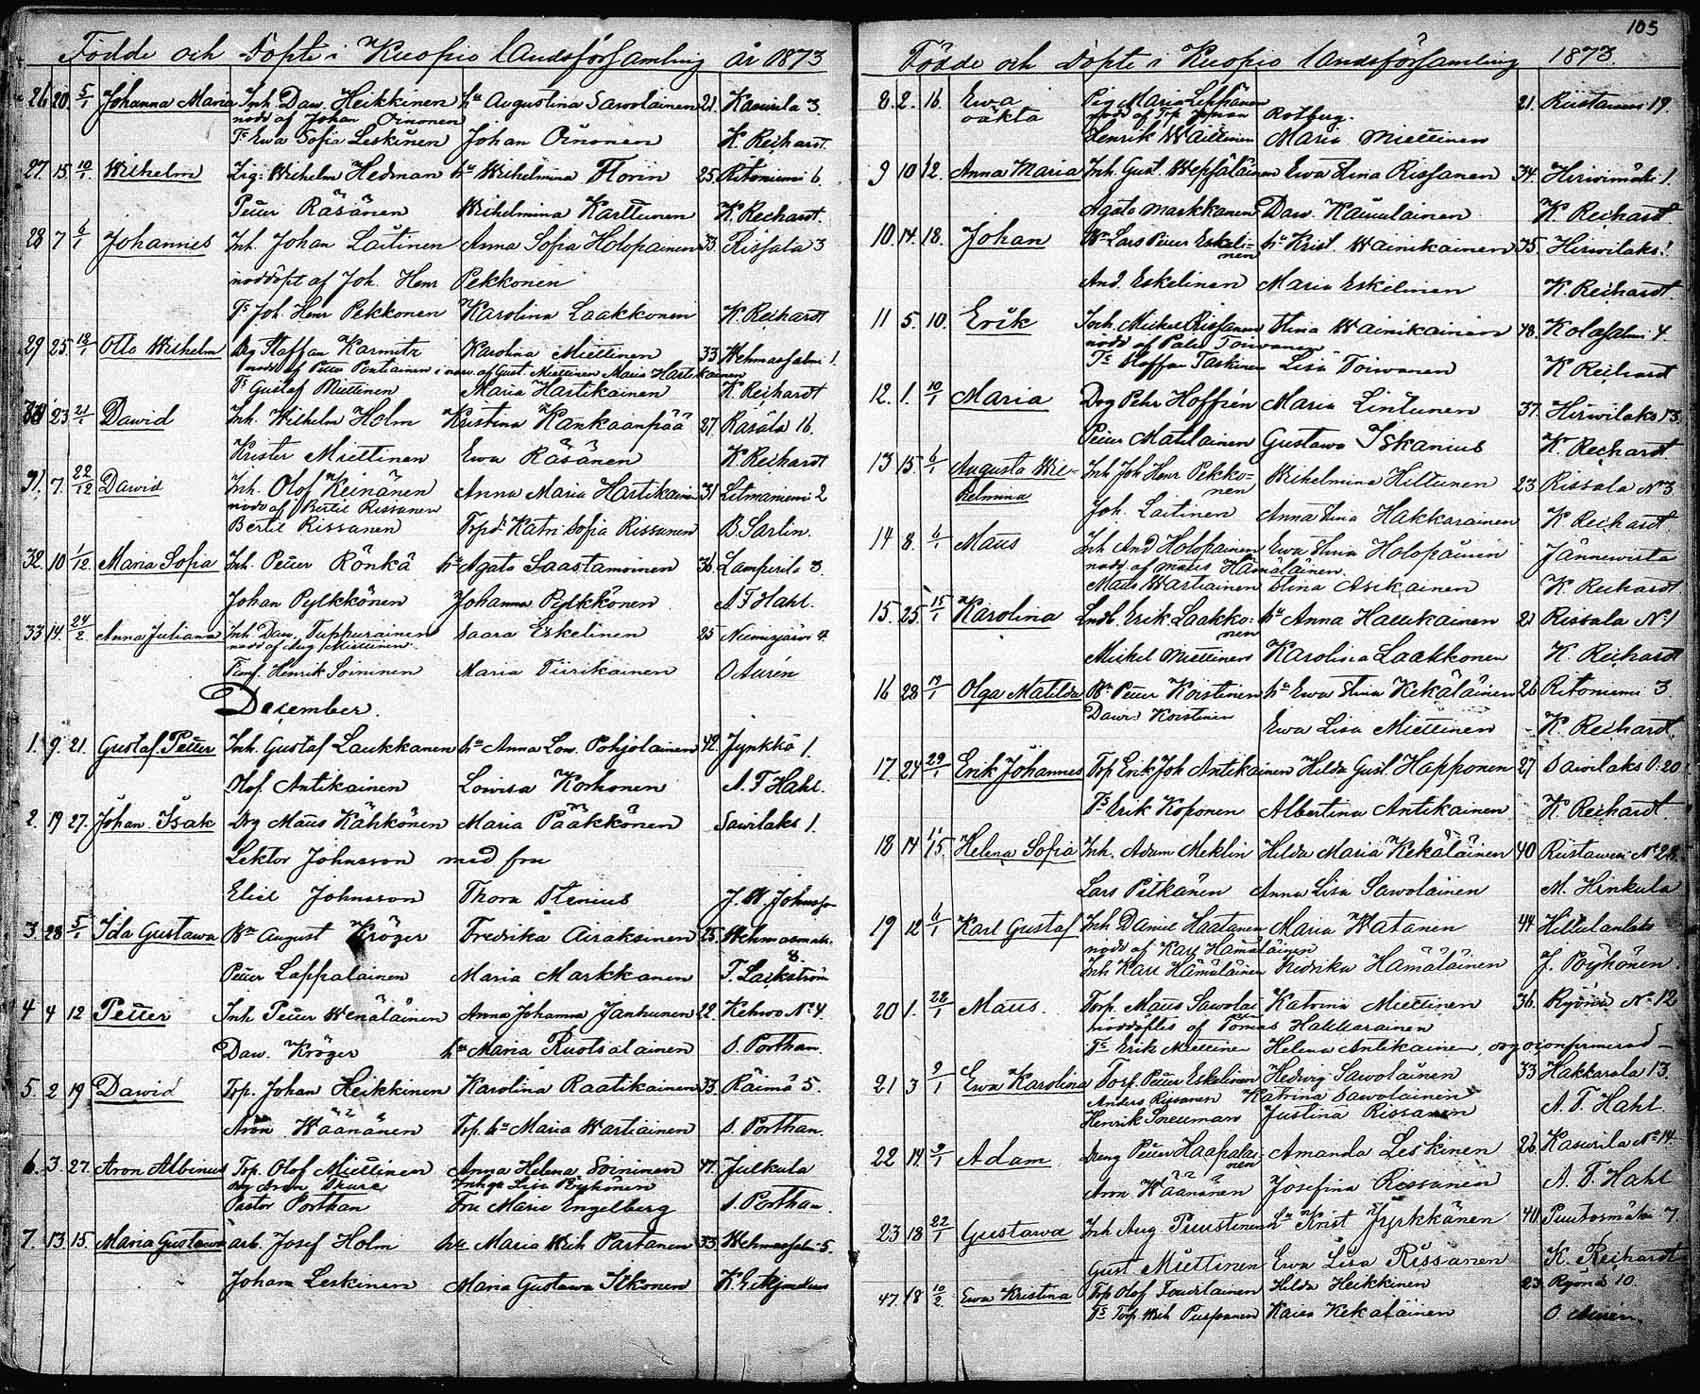 Födde och Döpte i Kuopio Landsförsamling år 1873
26 20 5/1 Johanna Maria Inh. Daw. Heikkinen hu Augustina Sawolainen 21. Kasurila 3.
nödd af Johan Oinonen
Ts Ewa Sofia Leskinen Johan Oinonen K. Reihardt.
27. 15 10/1 Wilhelm Wilhelm Hedman hu Wilhelmina Florin 25. Ritoniemi 6.
Petter Räsänen Wilhelmina Karttunen K. Reihardt.
28 7 6/1 Johannes Inh. Johan Laitinen Anna Sofia Holopainen 33. Rissala 3
nöddöpt af Joh. Henr Pekkonen
Ts Joh. Henr Pekkonen Karolina Laakkonen K. Reihardt
29 25. Otto Wilhelm Drg Staffan Karmitz Karolina Miettinen 33 Wehmassalmi 1.
nödd af Petter Pentiainen i narv. af Gust. Miettinen Maria Hartikainen
Ts Gustaf Miettinen Maria Hartikainen K. Reihardt
23 21/1 Dawid Inh. Wilhelm Holm Kristina Kankaanpää 27. Rasala 16.
Krister Miettinen Ewa Räsänen K. Reihardt
31. 7. 22/12 Dawid Inh. Olof Keinänen Anna Maria Hartikainen 31 Litmaniemi 2
nödd af Bertil Rissanen
Bertil Rissanen Topd. Katri Sofia Rissanen B. Sarlin.
32. 10 1/12 Maria Sofia Inh. Petter Rönkä hu Agata Saastamoinen 36. Lamperila 3.
Johan Pylkkönen Johanna Pylkkönen A. F. Hahl.
33 14. 24/2 Anna Juliana Inh. Daw. Tuppurainen Saara Eskelinen 25 Niemisjärvi 4.
nödd af Aug. Miettinen
Henrik Soininen Maria Tiirikainen O Aurén
December.
1. 9. 21. Gustaf Petter Inh. Gustaf Laukkanen hu Anna Lov. Pohjolainen 42. Jynkkä 1.
Olof. Antikainen Lowisa Korhonen A. F. Hahl.
2. 19 27. Johan Isak Drg Maus Kähkönen Maria Pääkkönen Sawilaks 1.
Lektor Johnsson med fru
Eliel Johnsson Thora Stenius J. W. Johnsson
3. 28 5/1 Ida Gustawa Bn August Kröger Fredrika Airaksinen 25. Wehmasmäki 8.
Petter Lappalainen Maria Markkanen F. Laikström
4 4 12 Petter Inh Petter Wenäläinen Anna Johanna Janhunen 22. Kehwo No 4.
Daw. Kröger hu Maria Ruotsalainen S. Porthan.
5. 2 19 Dawid Top. Johan Heikkinen Karolina Raatikainen 33. Räimä 5.
Aron Wäänänen Top. hu Maria Wartiainen S. Porthan.
6. 3. 27. Aron Albinus Top. Olof Miettinen Anna Helena Soininen 47. Julkula
Drg Aron Inhqe Lisa Pöyhönen
Pastor Porthan Fru Maria Engelberg S. Porthan.
7. 13 15. Maria Gustawa arb. Josef Holm hu Maria Wilh Partanen 33. Wehmassalmi 5.
Johan Leskinen Maria Gustawa Itkonen
105
Födde och Döpte i Kuopio Landsförsamling 1873.
8. 2. 16. Ewa Pig Maria Leppänen 21. Riistawesi 19.
oäkta nödd af Top Johan Rosberg.
Henrik Waittinen Maria Miettinen
9 10 12. Anna Maria Inh. Gust. Wepsäläinen Ewa Stina Rissanen 34. Hirwimäki 1.
Agata Markkanen Daw. Kaunlainen K Reihardt
10. 14. 18. Johan Bn Lars Petter Eskelinen hu Krist. Wainikainen 35. Hirwilaks 1.
And. Eskelinen Maria Eskelinen K. Reihardt.
11 5. 10. Erik Inh. Mickel Rissanen Stina Wainikainen 48. Kolasalmi 4.
nödd af Pål Toiwanen
Ts Staffan Taskinen Lisa Toiwanen K Reihardt
12. 1. 10/1 Maria Drg Pehr Hoffrén Maria Lintunen 37. Hirwilaks 13.
Petter Matilainen Gustawa Iskanius K. Reihardt
13 15. 6/1 Augusta Wilhelmina Inh Joh Henr Pekkonen Wilhelmina Hiltunen 23 Rissala No 3
Joh. Laitinen Anna Stina Hakkarainen K Reihardt.
14 8. 6/1 Maus Inh And Holopainen Ewa Stina Holopainen Jännewirta
nödd af Matts Hämäläinen.
Maus Wartiainen Stina Asikainen K Reihardt
15. 25. 15/1 Karolina Lndb. Erik Laakkonen hu Anna Hallikainen 21 Rissala No 1
Mickel Miettinen Karolina Laakkonen K. Reihardt
16 28 19/1 Olga Matilda Bn Petter Koistinen hu Ewa Stina Kekäläinen 26 Ritoniemi 3.
Dawid Koistinen Ewa Lisa Miettinen K. Reihardt.
17. 24 29/1 Erik Johannes Top Erik Joh Antikainen Hilda Gust. Happonen 27 Sawilaks 20
Ts Erik Koponen Albertina Antikainen K. Reihardt.
18 14 1/15. Helena Sofia Inh. Adam Meklin Hilda Maria Kekäläinen 40 Riistawesi No 28.
Lars Pitkänen Anna Lisa Sawolainen M. Hinkula
19 12 6/1 Karl Gustaf Inh Daniel Haatanen Maria Watanen 44 Hiltulanlaks
nödd af Karl Hämäläinen
Inh Karl Hämäläinen Fredrika Hämäläinen J. Pöyhönen
20 1. 22/1 Maus. Torp. Maus Sawolainen Katrina Miettinen 36. Ryönä No 12
nöddöptes af Tomas Hakkarainen
Ts Erik Miettinen Helena Antikainen,
21 3 2/1 Ewa Karolina Torp. Petter Eskelinen Hedvig Sawolainen 33 Hakkarala 13.
Anders Rissanen Katrina Sawolainen
Henrik Sneuman Justina Rissanen A. F. Hahl
22 14. 9/1 Adam Dreng Petter Haapalainen Amanda Leskinen 26. Kasurila No 14
Aron Wäänänen Josefina Rissanen A. F. Hahl
23 18 22/1 Gustawa Inh Aug Puustinen hu Krist Jyrkkänen 40. Puutosmäki 7.
Gust. Miettinen Ewa Lisa Rissanen K. Reihardt
47. 18 10/2. Ewa Kristina Top Olof Tourlainen Hilda Heikkinen 23 Ryönä 10
Ts Torp. Wilh Purponen Kaisa Kekäläinen O. Aurén.